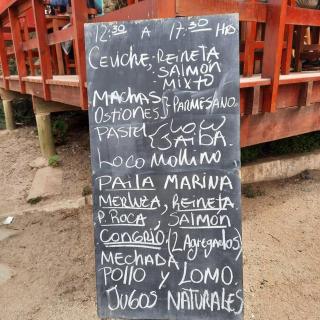 12:30 A 17:30 Hrs
CEVICHE, REINETA
SALMÓN
MIXTO
MACHAS } PARMESANO
OSTIONES
PASTEL { LOCO
JAIBA.
LOCO MOLLINO
PAILA MARINA
MERLUZA, REINETA
P. ROCA, SALMÓN
CONGRIO (2 AGREGADOS)
MECHADA
POLLO Y LOMO.
JUGOS NATURALES